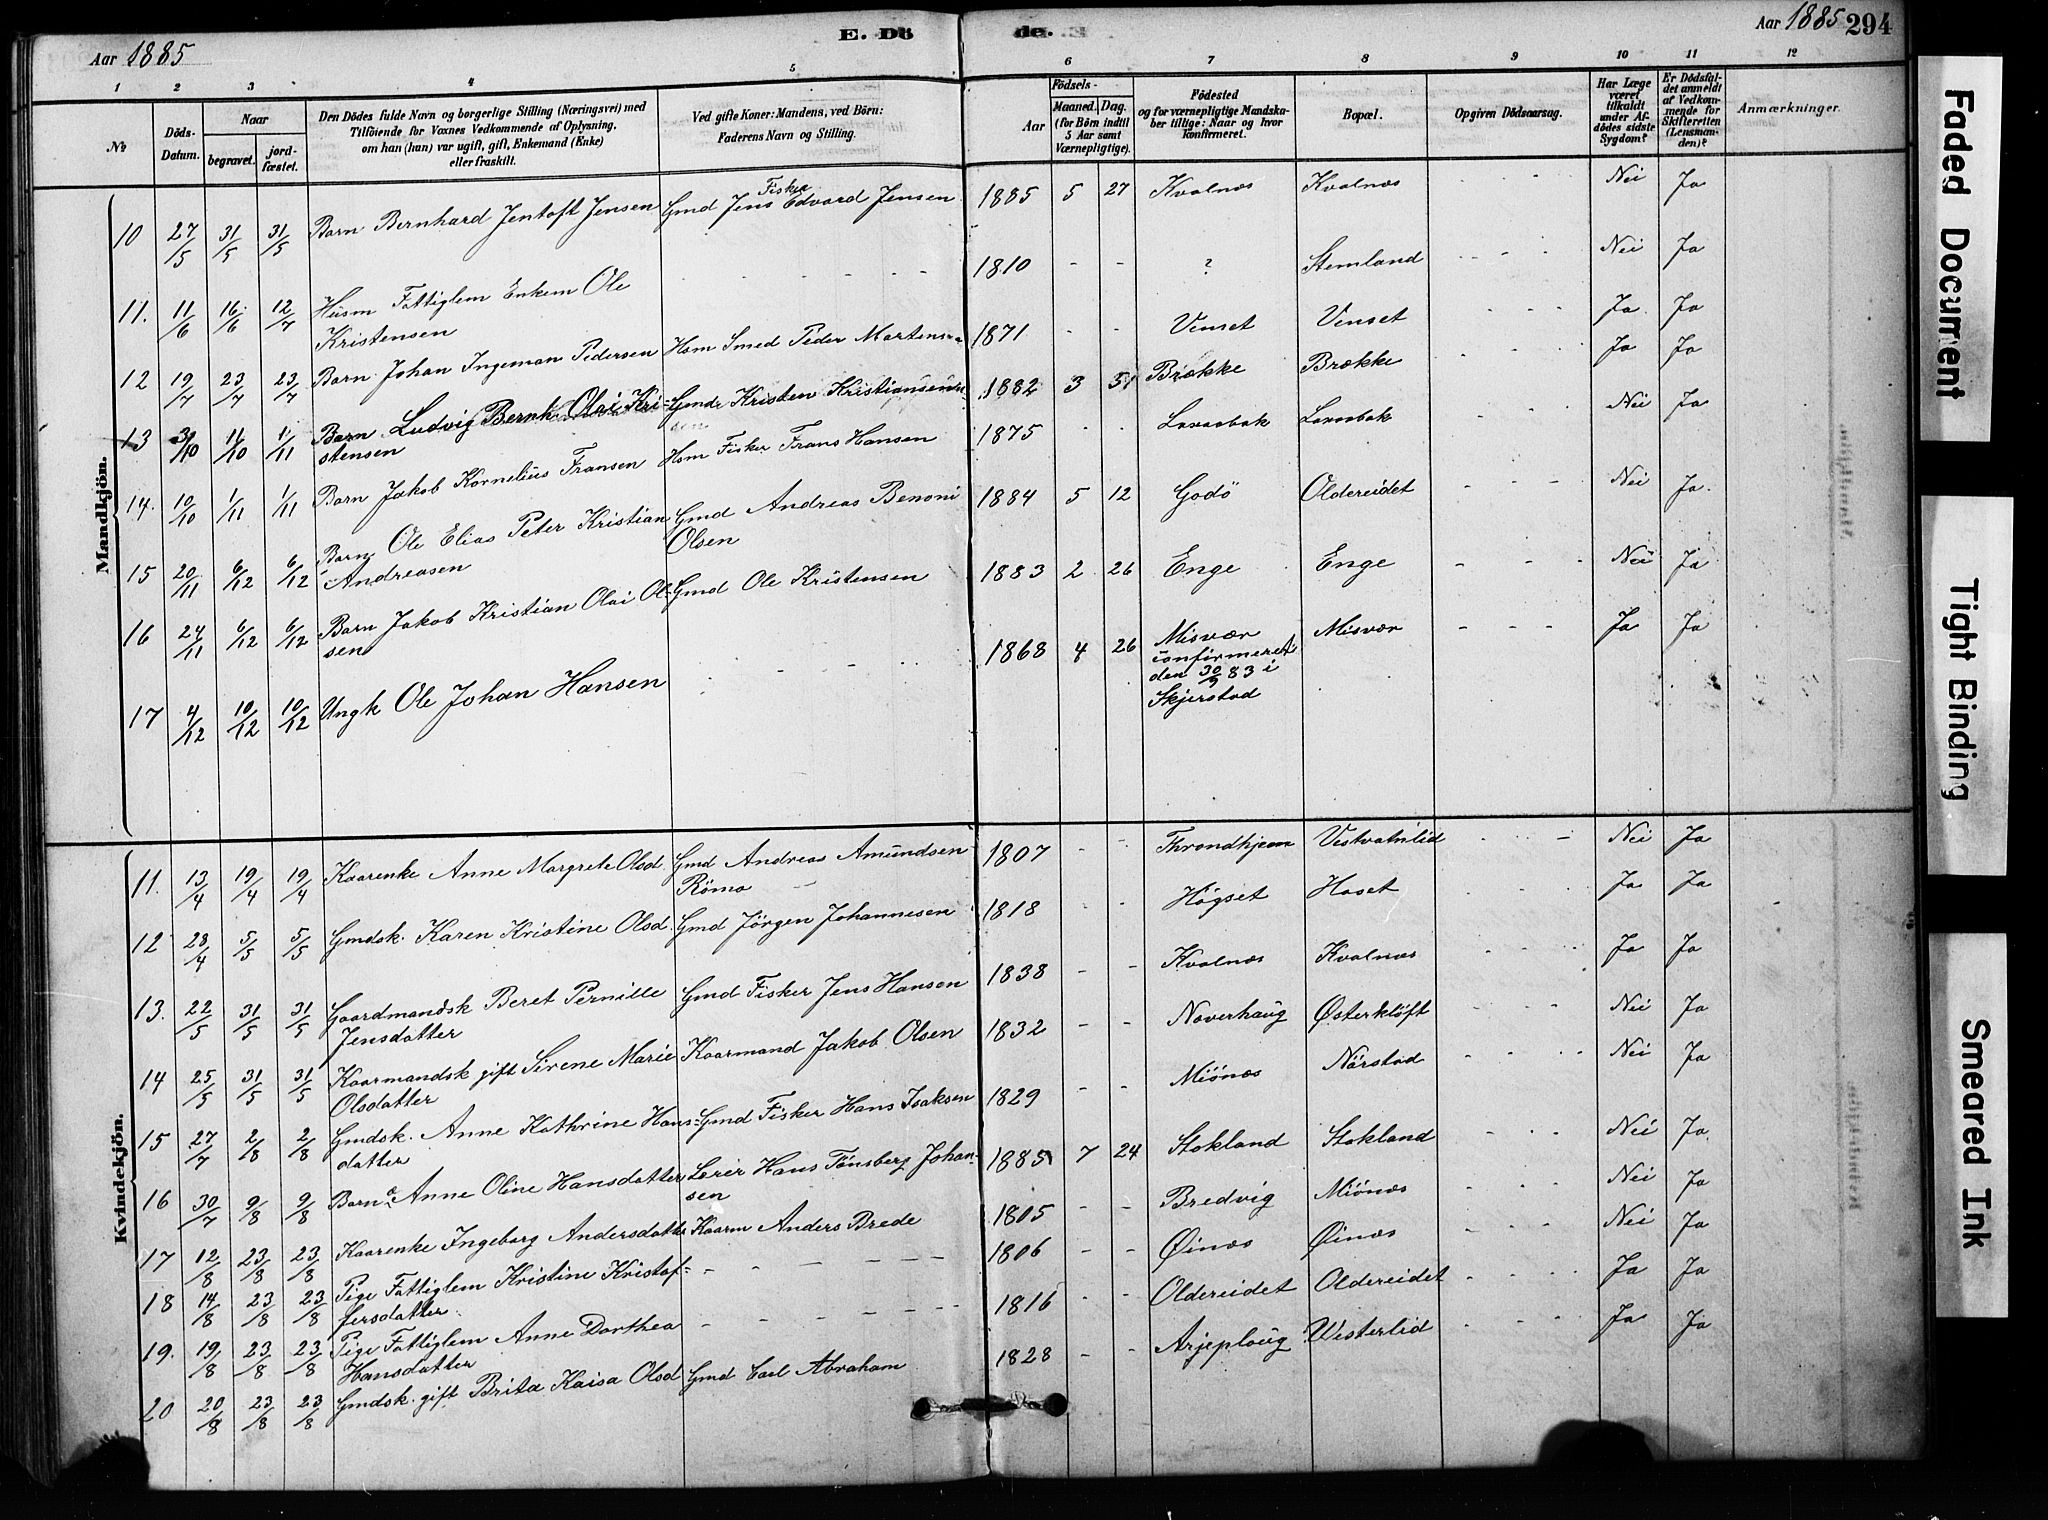 Aar 1885
E. Dö
de.
Aar 1885
294
1 2 3 4 5 6 7 8 9 10 11 12
No
Döds-
Datum.
Naar
begravet.
jord-
fæstet.
Den Dödes fulde Navn og borgerlige Stilling (Næringsvei) med
Tilföiende for Voxnes Vedkommende af Oplysning,
om han (hun) var ugift, gift, Enkemand (Enke)
eller fraskilt.
Ved gifte Koner: Mandens, ved Börn:
Faderens Navn og Stilling.
Födsels-
Aar
Maaned. Dag.
(for Börn indtil
5 Aar samt
Værnepligtige).
Födested
og for værnepligtige Mandska-
ber tillige: Naar og hvor
konfirmeret.
Bopæl.
Opgiven Dödsaarsag.
Har Læge
været
tilkaldt
under Af-
dödes sidste
Sygdom?
Er Dödsfal-
det anmeldt
af Vedkom-
mende for
Skifteretten
(Lensman-
den)?
Anmærkninger.
Mandkjön.
10 27/5 31/5 31/5 Barn Bernhard Jentoft Jensen Gmd Fisker Jens Edvard Jensen 1885 5 27 Kvalnæs Kvalnæs - - - Nei Ja
11. 11/6 16/6 12/7 Husm Fattiglem Enkem Ole
Kristensen - - - - - 1810 - - ? Stemland - - - Nei Ja
12 19/7 23/7 23/7 Barn Johan Ingeman Pedersen Hsm Smed Peder Martensen 1871 - - Venset Venset - - - Ja Ja
13 3/10 11/10 1/11 Barn Ludvig Bernh. Olai Kri-
stensen Gmd Kristen Kristiansen 1882 3 Brække Brække - - - Ja Ja
14. 10/10 1/11 1/11 Barn Jakob Kornelius Fransen Hsm Fisker Frans Hansen 1875 - - Laxaabak Laxaabak - - - Nei Ja
15 20/11 6/12 6/12 Barn Ole Elias Peter Kristian
Andreasen Gmd Andreas Benoni
Olsen 1884 5 12 Godö Oldereidet - - - Nei Ja
16 24/11 6/12 6/12 Barn Jakob Kristian Olai Ol-
sen Gmd Ole Kristensen 1883 2 26 Enge Enge - - - Nei Ja
17 4/12 10/12 10/12 Ungk Ole Johan Hansen - - - - 1868 4 26 Misvær
confirmeret
den 30/9 83 i
Skjerstad Misvær - - - Ja Ja
Kvindekjön.
11. 13/4 19/4 19/4 Kaarenke Anne Margrete Olsd. Gmd Andreas Amundsen
Römo 1807 - - Throndhjem Vestvatnlid - - - Nei Ja
12 28/4 5/5 5/5 Gmdsk. Karen Kristine Olsd. Gmd Jörgen Johannesen 1818 - - Högset Hoset - - - Ja Ja
13. 22/5 31/5 31/5 Gaardmandsk Beret Pernille
Jensdatter Gmd Fisker Jens Hansen 1838 - - Kvalnæs Kvalnæs - - - Ja Ja
14 25/5 31/5 31/5 Kaarmandsk gift Sirene Marie
Olsdatter Kaarmand Jakob Olsen 1832 - - Naverhaug Østerklöft - - - Nei Ja
15 27/7 2/8 2/8 Gmdsk. Anne Kathrine Hans-
datter Gmd Fisker Hans Isaksen 1829 - - Miönæs Nörstad - - - Nei Ja
16 30/7 9/8 9/8 Barn Anne Oline Hansdatter Leier Hans Tönsberg Johan-
sen 1885 7 24 Stokland Stokland - - - Nei Ja
17 12/8 23/8 23/8 Kaarenke Ingeborg Andersdatter Kaarm Anders Brede 1805 - - Bredvig Miönæs - - - Nei Ja
18 14/8 23/8 23/8 Pige Fattiglem Kristine Kristof-
fersdatter - - - - - 1806 - - Øinæs Øinæs - - - Nei Ja
19. 19/8 23/8 23/8 Pige Fattiglem Anne Dorthea
Hansdatter - - - - - 1816 - - Oldereidet Oldereidet - - - Ja Ja
20 20/8 23/8 23/8 Gmdsk. gift Brita Kaisa Olsd Gmd Carl Abraham 1828 - - Arjeploug Westerlid - - - Ja Ja
Faded Document
Tight Binding
Smeared Ink